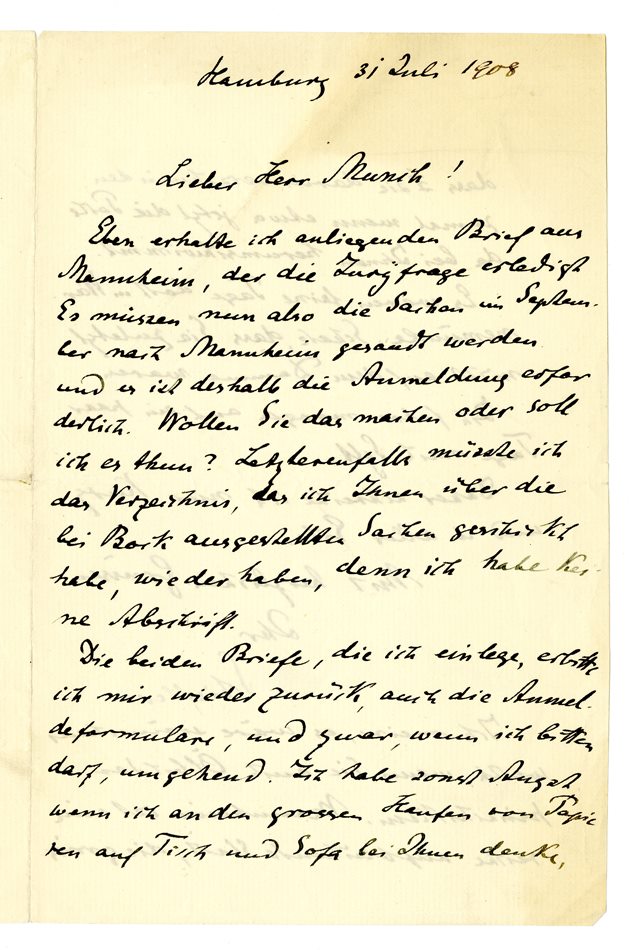 Hamburg 31 Juli 1908
Lieber Herr Munch!
Eben erhalte ich anliegenden Brief aus
Mannheim, der die Juryfrage erledigt
Es müssen nun also die Sachen im Septem-
ber nach Mannheim gesandt werden
und es ist deshalb die Anmeldung erfor
derlich. Wollen Sie das machen oder soll
ich es thun? Letzterenfalls müsste ich
das Verzeichnis, das ich Ihnen über die
bei Bock ausgestellten Sachen geschickt
habe, wieder haben, denn ich habe kei-
ne Abschrift.
Die beiden Briefe, die ich einlege, erbitte
ich mir wieder zurück, auch die Anmel-
deformulare, und zwar, wenn ich bitten
darf, umgehend. Ich habe sonst Angst
wenn ich an den grossen Haufen von Papie
ren auf Tisch und Sofa bei Ihnen denke,